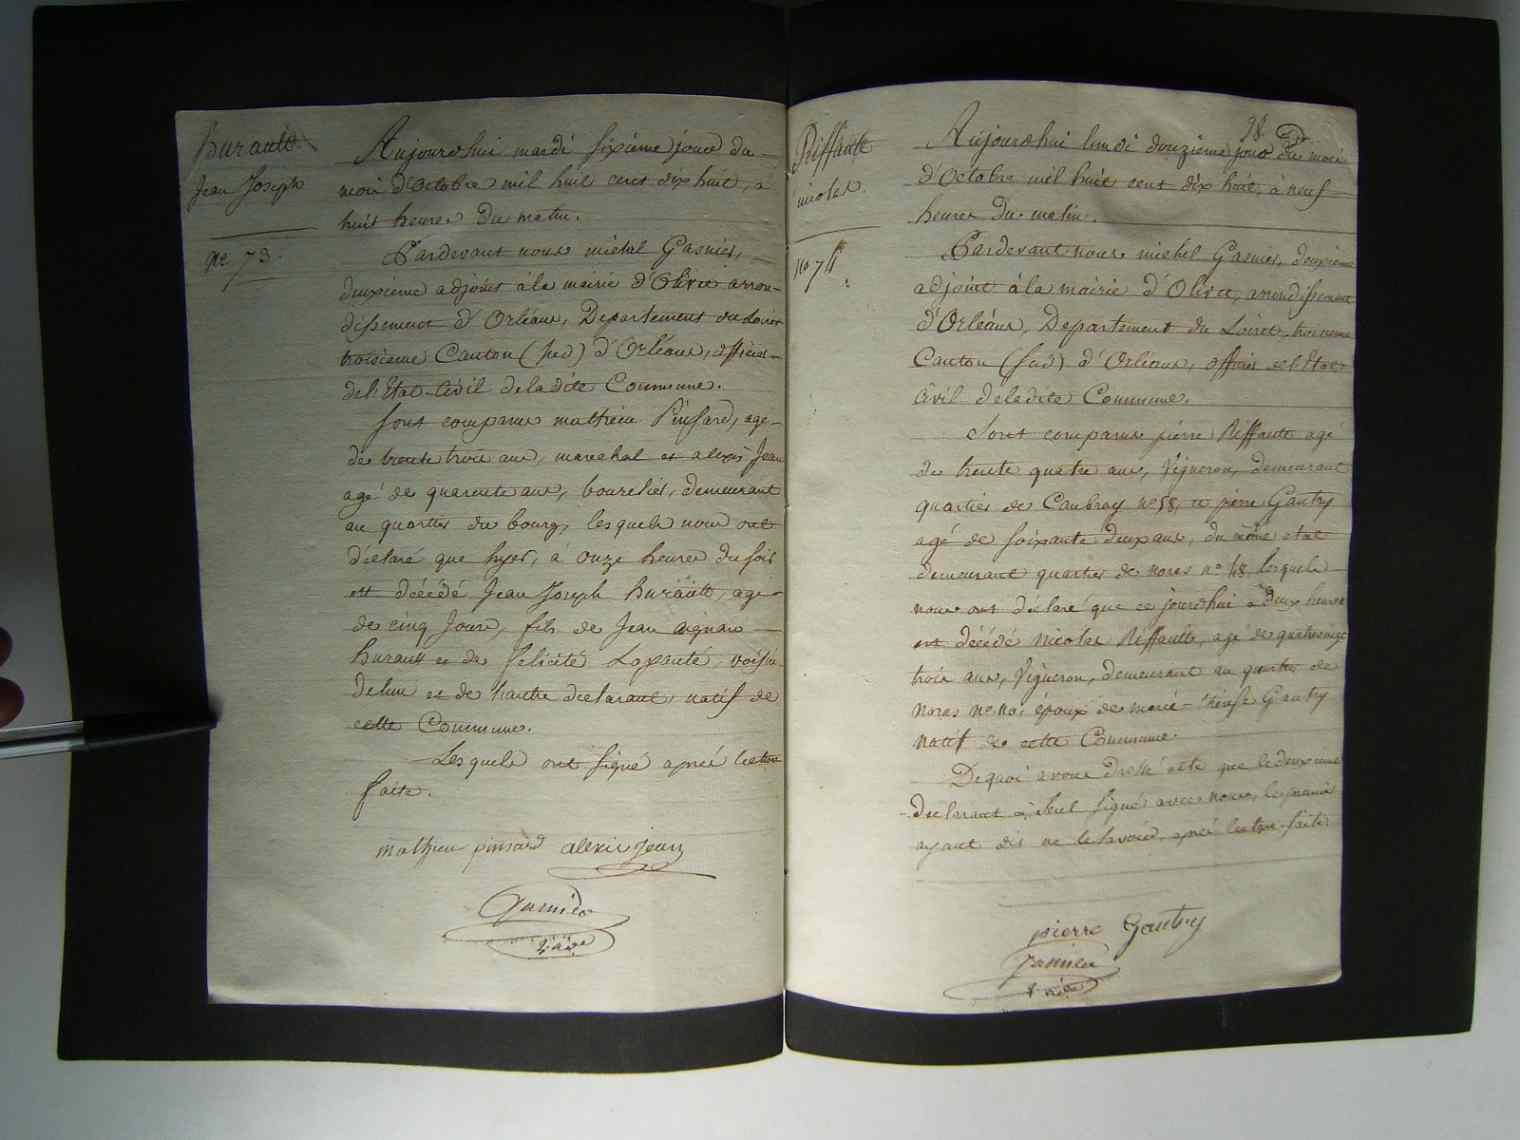 hurault
Jean Joseph
No 73.
Aujourdhui mardi sixième jour du
mois d'Octobre mil huit cent dix huit, à
huit heures du matin.
Pardevant nous michel Gasnier,
deuxième adjoint à la mairie d'Olivet arron-
dissement d'Orléans, Departement du Loiret
troisième Canton (sud) d'Orléans, officier
de l'Etat-Civil de la dite Commune.
Sont comparus mathieu Pinsard, agé
de trente trois ans, marechal et alexis Jean
agé de quarente ans, bourelier, demeurant
au quartier du bourg, lesquels nous ont
déclaré que hyer, à onze heures du soir
est décédé Jean Joseph hurault, agé
de cinq Jours, fils de Jean aignan
hurault et de felicité Lapauté, voisin
de lun et de l'autre déclarant, natif de
cette Commune.
Lesquels ont signé après lecture
faite.
mathieu pinsard alexis jean
Gasnier
Riffault
nicolas.
No 74.
38
Aujourdhui lundi douzième jour du mois
d'Octobre mil huit cent dix huit, à neuf
heures du matin.
Pardevant nous michel Gasnier, deuxième
adjoint à la mairie d'Olivet, arrondissement
d'Orléans, Departement du Loiret, troisième
Canton (sud) d'Orléans, officier de l'Etat
Civil de la dite Commune.
Sont comparus pierre Riffault agé
de trente quatre ans, Vigneron, demeurant
quartier de Caubray no 58, et pierre Gautry
agé de soixante deux ans, du même état
demeurant quartier de nores no 48, lesquels
nous ont déclaré que ce jourdhui à deux heures
est décédé nicolas Riffault, agé de quatrevingt
trois ans, Vigneron, demeurant au quartier de
nores no époux de marie-thérèse Gautry
natif de cette Commune.
De quoi avons dressé acte que le deuxième
déclarant a seul signé avec nous, le premier
ayant dit ne le savoir, après lecture faite.
pierre Gautry
Gasnier